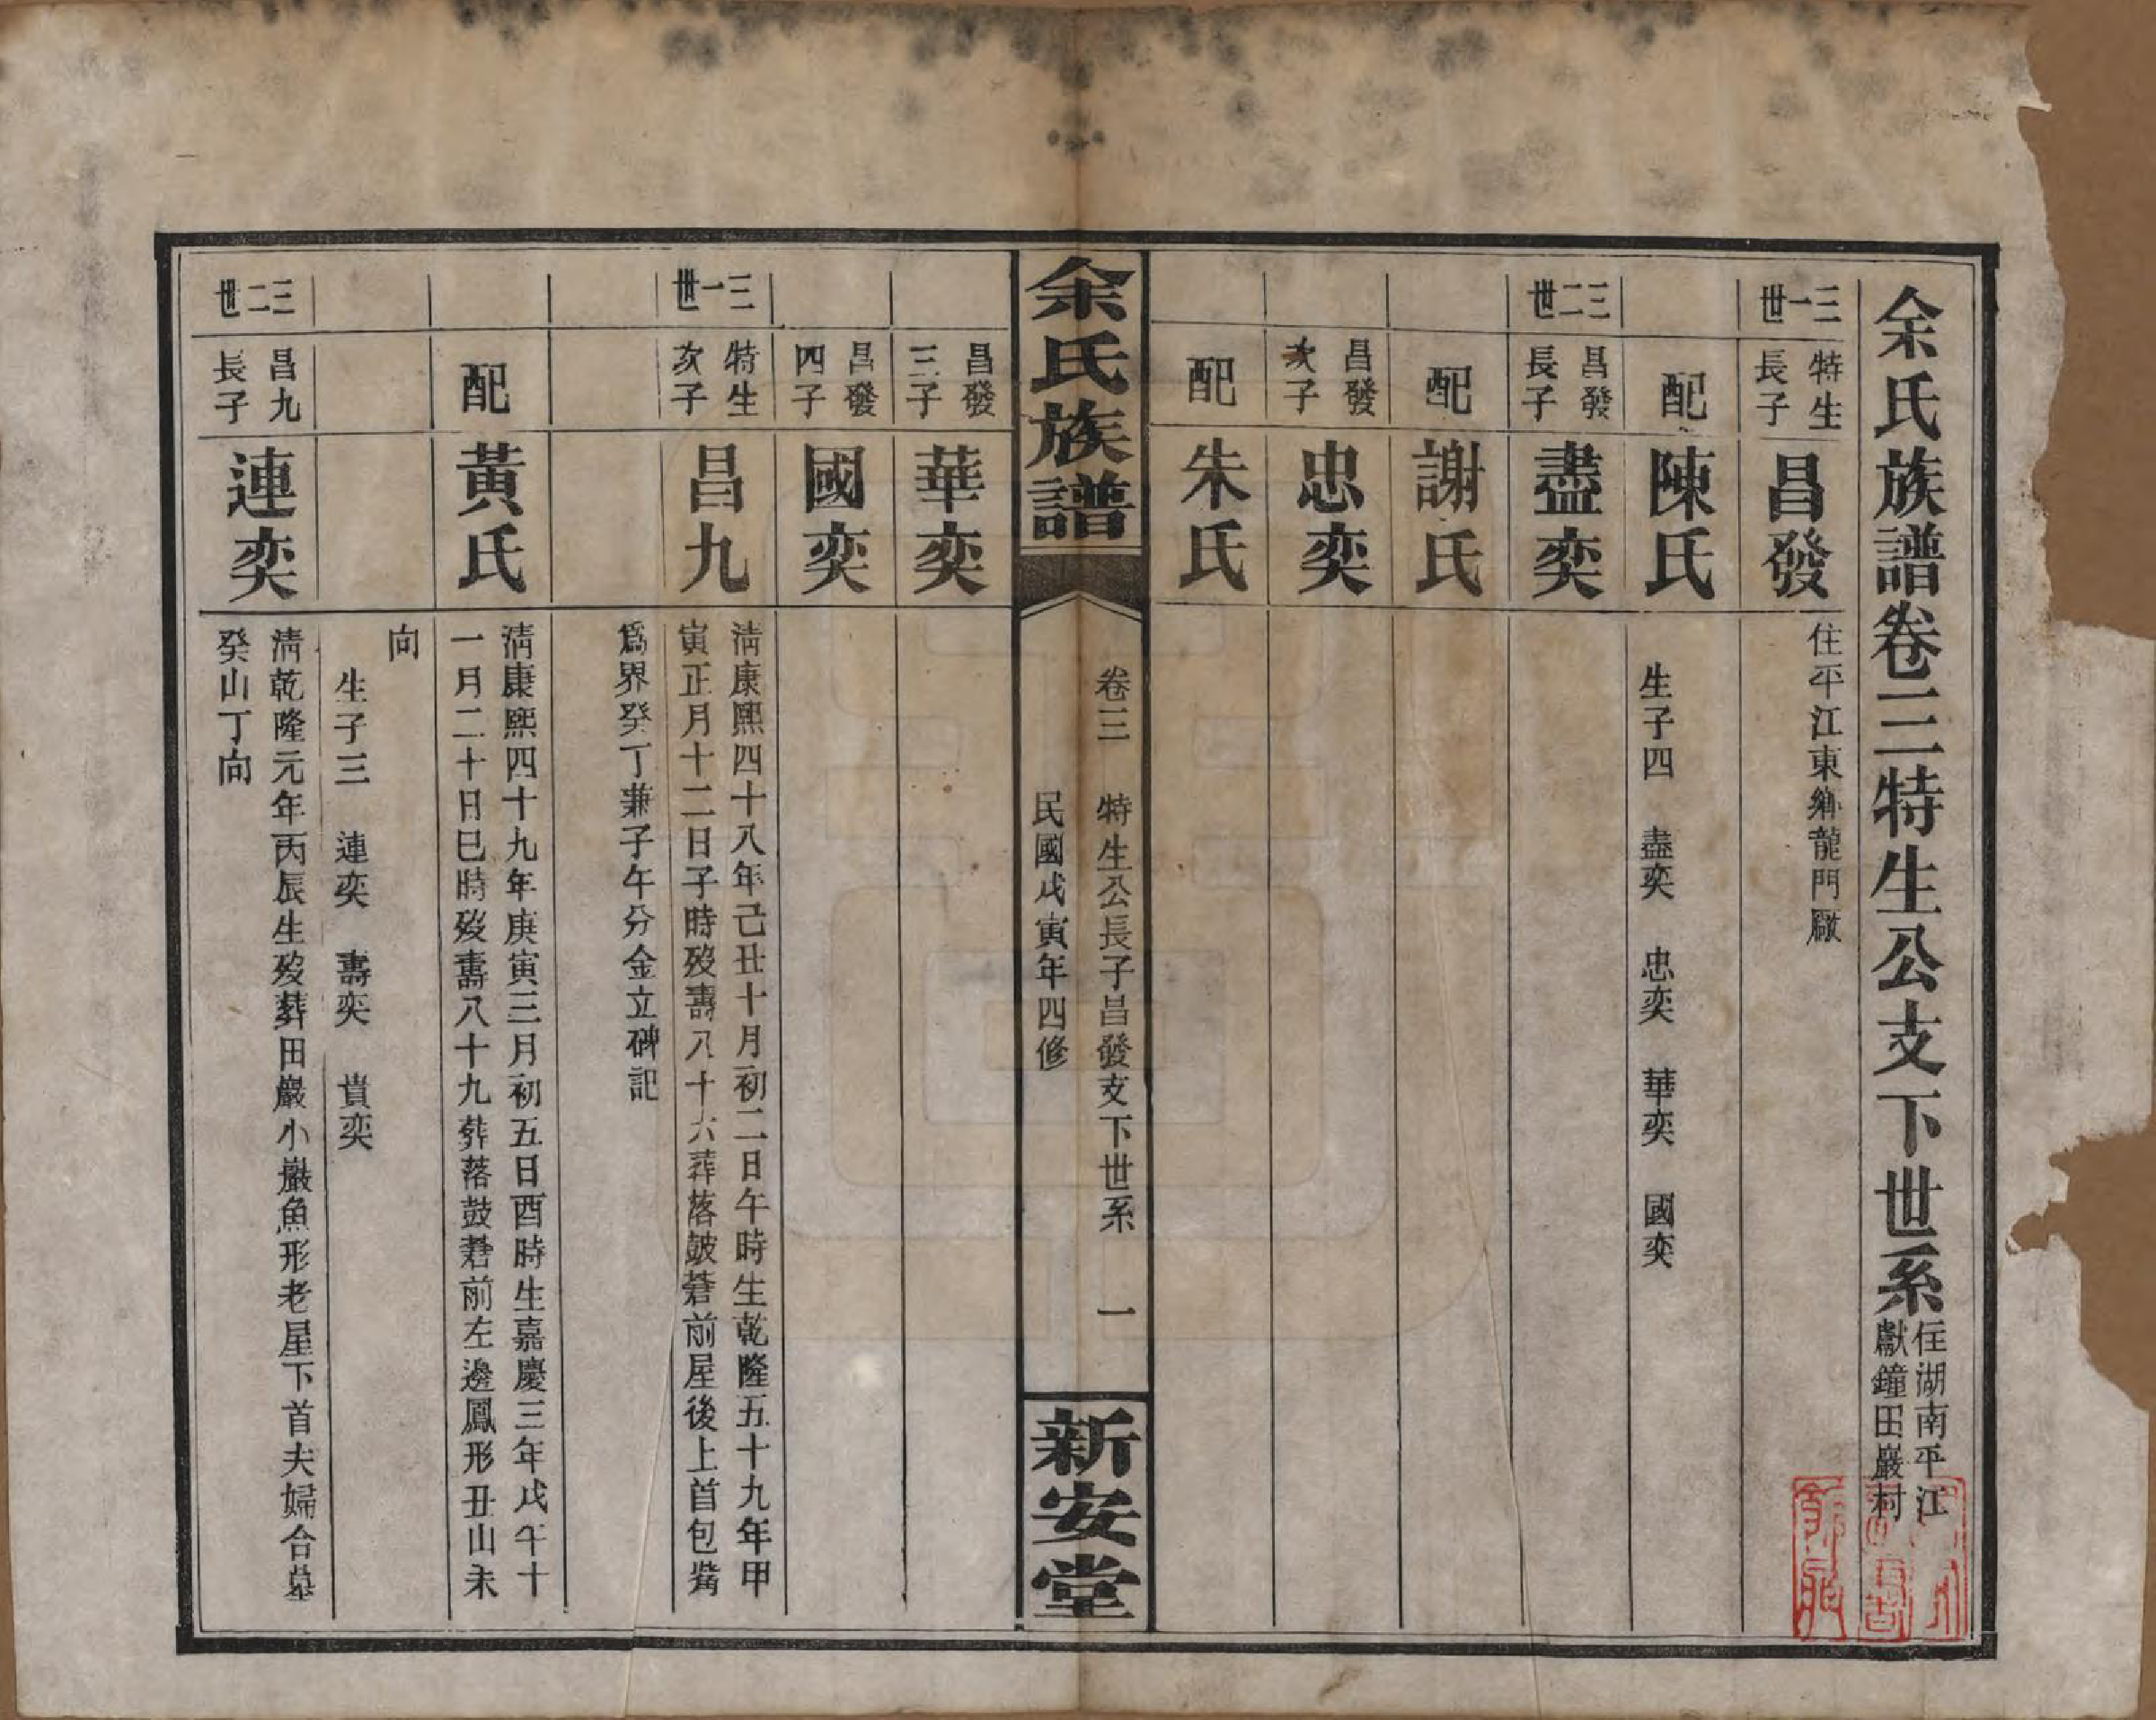 余氏族譜卷三特生公支下世系
住湖南平江
獻鐘田巖村
三一世
特生
長子
昌發
住平江東鄉龍門厰
配
陳氏
生子四 盡奕 忠奕 華奕 國奕
三二世
昌發
長子
盡奕
配
謝氏
昌發
次子
忠奕
配
朱氏
余氏族譜
卷三 特生公長子昌發支下世系 一
民國戊寅年四修
新安堂
昌發
三子
華奕
昌發
四子
國奕
三一世
特生
次子
昌九
清康熙四十八年己丑十月初二日午時生乾隆五十九年甲
寅正月十二日子時歿壽八十六葬落鼓前屋後上首包嘴
爲界癸丁兼子午分金立碑記
配
黃氏
清康熙四十九年庚寅三月初五日酉時生嘉慶三年戊午十
一月二十日巳時歿壽八十九葬落鼓前左邊鳳形丑山未
向
生子三 連奕 壽奕 貴奕
三二世
昌九
長子
連奕
清乾隆元年丙辰生歿葬田巖小巖魚形老星下首夫婦合墓
癸山丁向